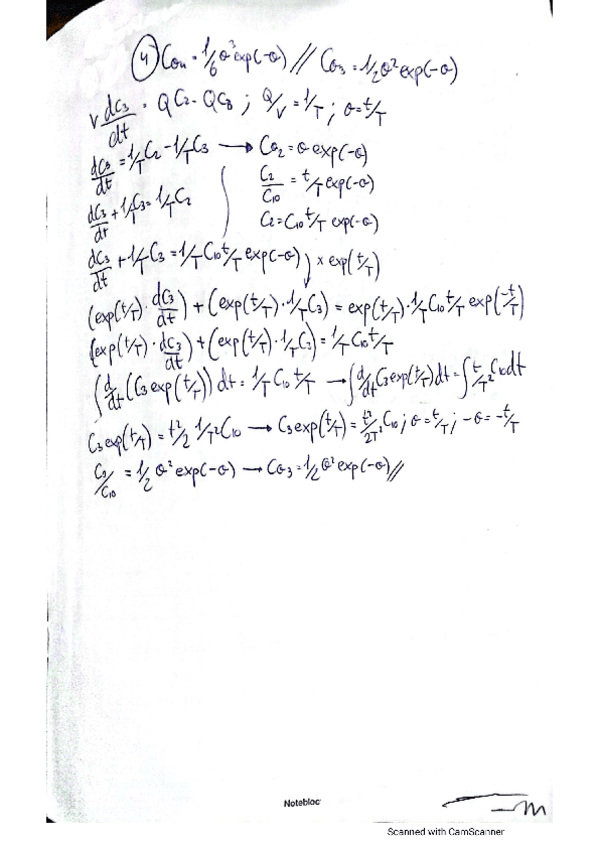 ④ Cθ4 = 1/6 θ³ exp(-θ) // Cθ3 = 1/2 θ² exp(-θ)
V dC3/dt = QC2 - QC3 ; Q/V = 1/T ; θ = t/T
dC3/dt = 1/T C2 - 1/T C3 → Cθ2 = θ exp(-θ)
dC3/dt + 1/T C3 = 1/T C2
C2/C10 = t/T exp(-θ)
C2 = C10 t/T exp(-θ)
dC3/dt + 1/T C3 = 1/T C10 t/T exp(-θ) ) × exp(t/T)
(exp(t/T) · dC3/dt) + (exp(t/T) · 1/T C3) = exp(t/T) · 1/T C10 t/T exp(-t/T)
(exp(t/T) · dC3/dt) + (exp(t/T) · 1/T C3) = 1/T C10 t/T
∫ (d/dt (C3 exp(t/T))) dt = 1/T C10 t/T → ∫ d/dt C3 exp(t/T) dt = ∫ t/T² C10 dt
C3 exp(t/T) = t²/2 1/T² C10 → C3 exp(t/T) = t²/2T² C10 ; θ = t/T ; -θ = -t/T
C3/C10 = 1/2 θ² exp(-θ) → Cθ3 = 1/2 θ² exp(-θ) //
Notebloc
Scanned with CamScanner